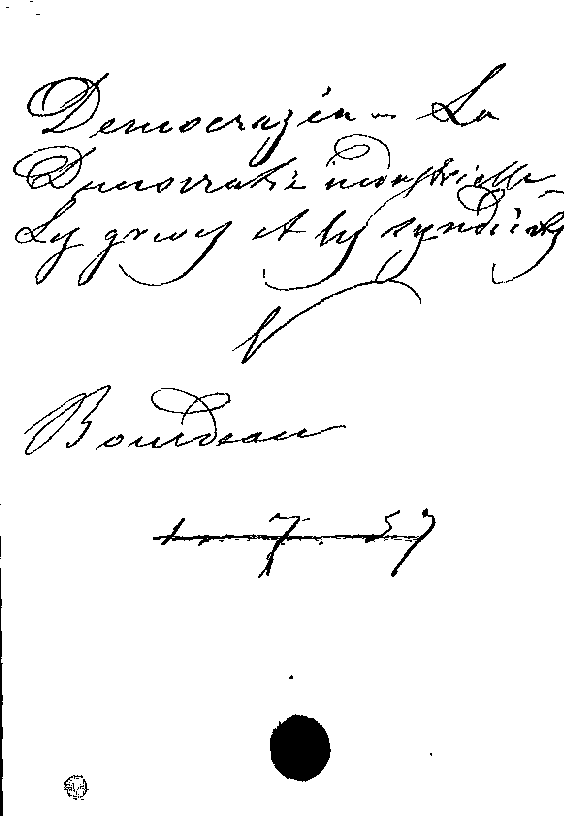 Democrazia - La
Democratie industrielle
Les greves et les syndicats
V
Bourdeau
1. 7. 57